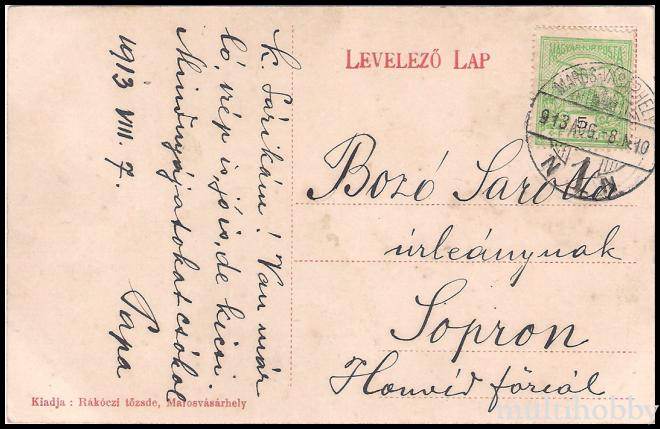 K. Sárikám! Van már
ló, szép is, jó is, de kicsi.
Mindnyájatokat csókol
1913 VIII. 7. Papa
LEVELEZŐ LAP
MAGYAR KIR. POSTA
MAROS-VÁSÁRHELY
913 AUG. -8 10
5
1
Bozó Sarolta
úrleánynak
Sopron
Honvéd főreál
Kiadja : Rákóczi tőzsde, Marosvásárhely
multihobby